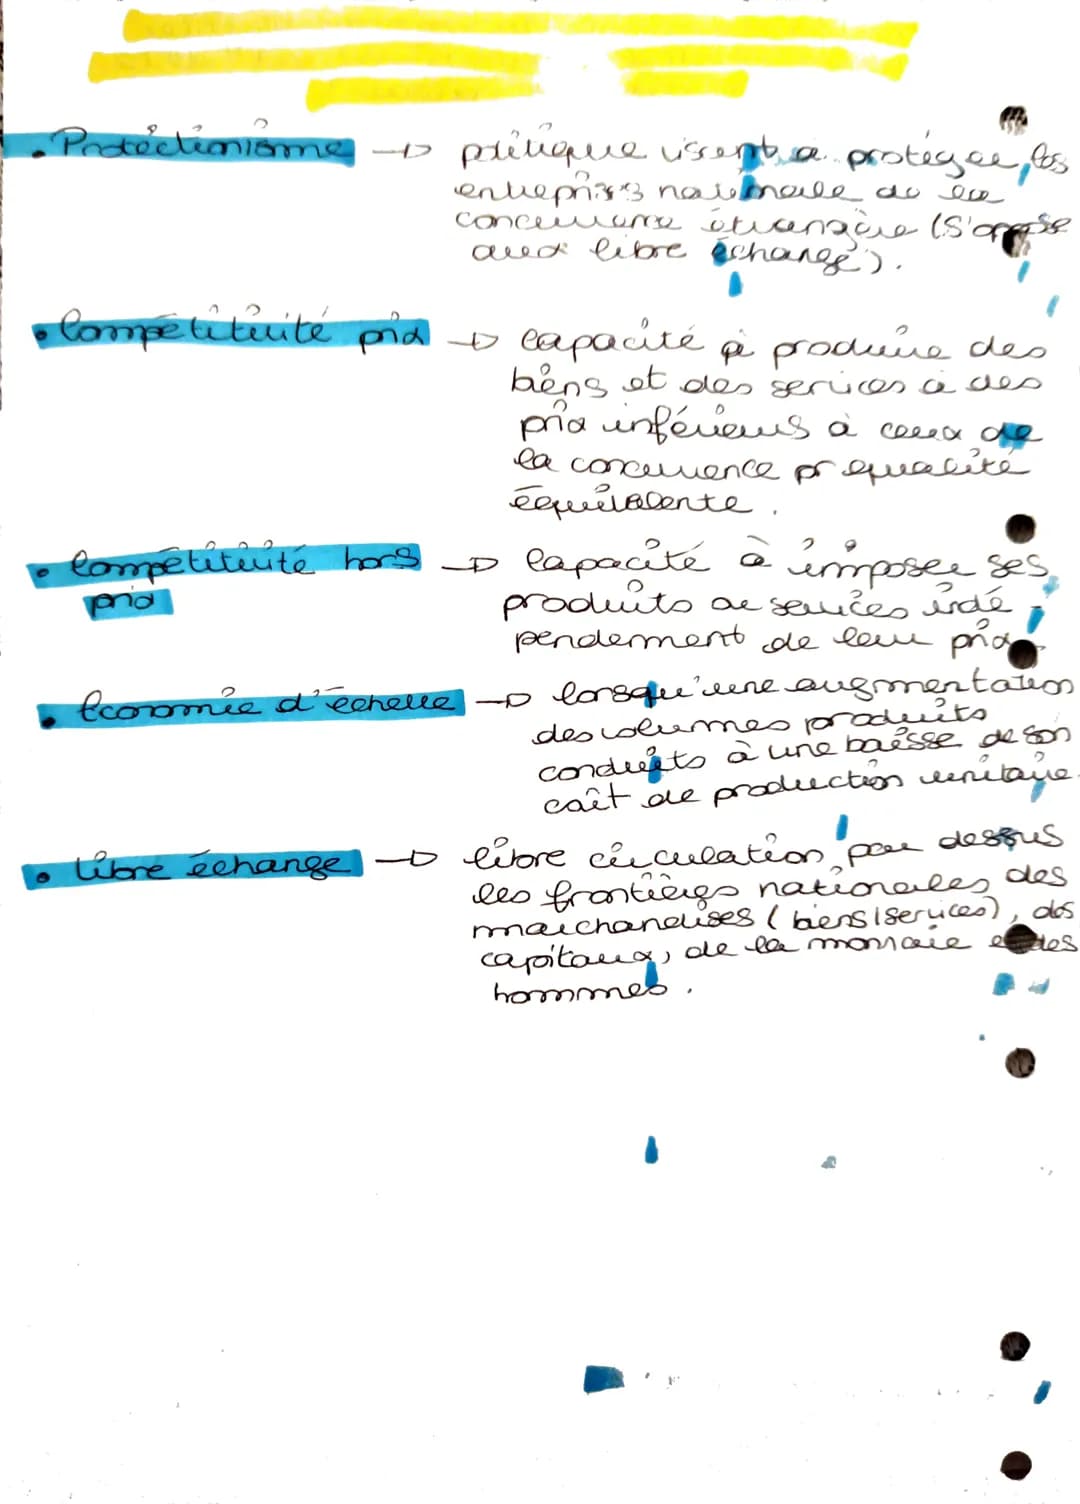 • Protectionisme → politique visent a protéger les
entreprises nationale de la
concurrence étrangère (s'oppose
aux libre échange).
• Compétitivité prix → Capacité à produire des
biens et des services a des
prix inférieurs à ceux de
la concurrence pr equalité
éequivalente.
• Compétitivité hors → Capacité à imposer ses
prix
produits ou services indé-
pendemment de leur prix.
• Économie d'échelle → lorsqu'une augmentation
des volumes produits
conduits à une baisse de son
coût de production unitaire.
• Libre échange → libre circulation, par dessus
les frontières nationales, des
marchandises (biens/services), des
capitaux, de la monnaie et des
hommes.